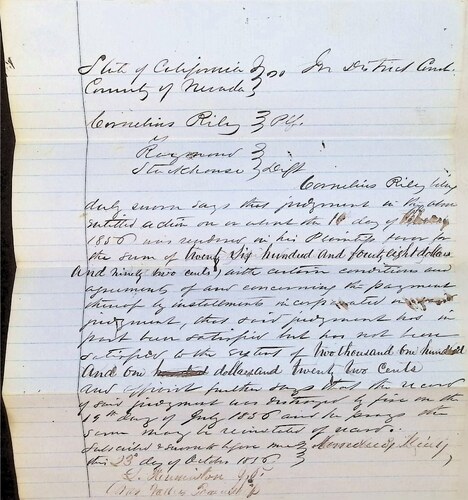 State of California } ss In District Court
County of Nevada }
Cornelius Riley } Plf.
vs }
Raymond }
Stackhouse } Deft
Cornelius Riley being
duly sworn says that judgment in the above
entitled action on or about the day of
1856 was rendered in his Plaintiffs favor for
the sum of Twenty Six hundred and fourty eight dollars
and ninety two cents, with certain conditions and
agreements of and concerning the payment
thereof by installments incorporated in
judgment, that said judgment has in
part been satisfied but has not been
satisfied to the extent of Two thousand one hundred
and one dollars and twenty two Cents
and affiant further says that the record
of said judgment was destroyed by fire on the
19th day of July 1856 and he prays the
same may be reinstated of record.
Subscribed & sworn to before me } Cornelius Riley
this 23d day of October 1856 }